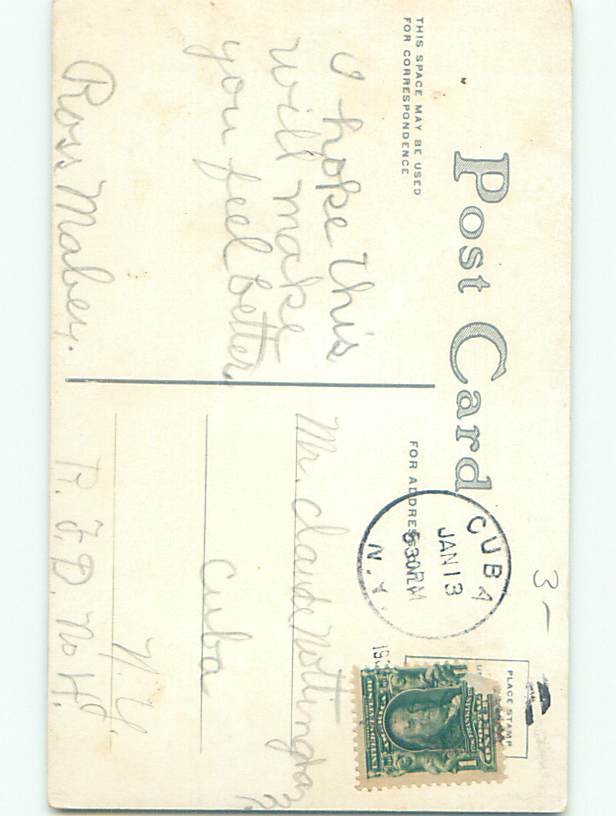 Post Card
THIS SPACE MAY BE USED
FOR CORRESPONDENCE
I hope This
will make
you feel better.
Ross Mabey.
FOR ADDRESS ONLY
CUBA
JAN 13
630 PM
N.Y.
PLACE STAMP
3-
Mr. Claude Nottingham
Cuba
N.Y.
R.F.D. No 4.